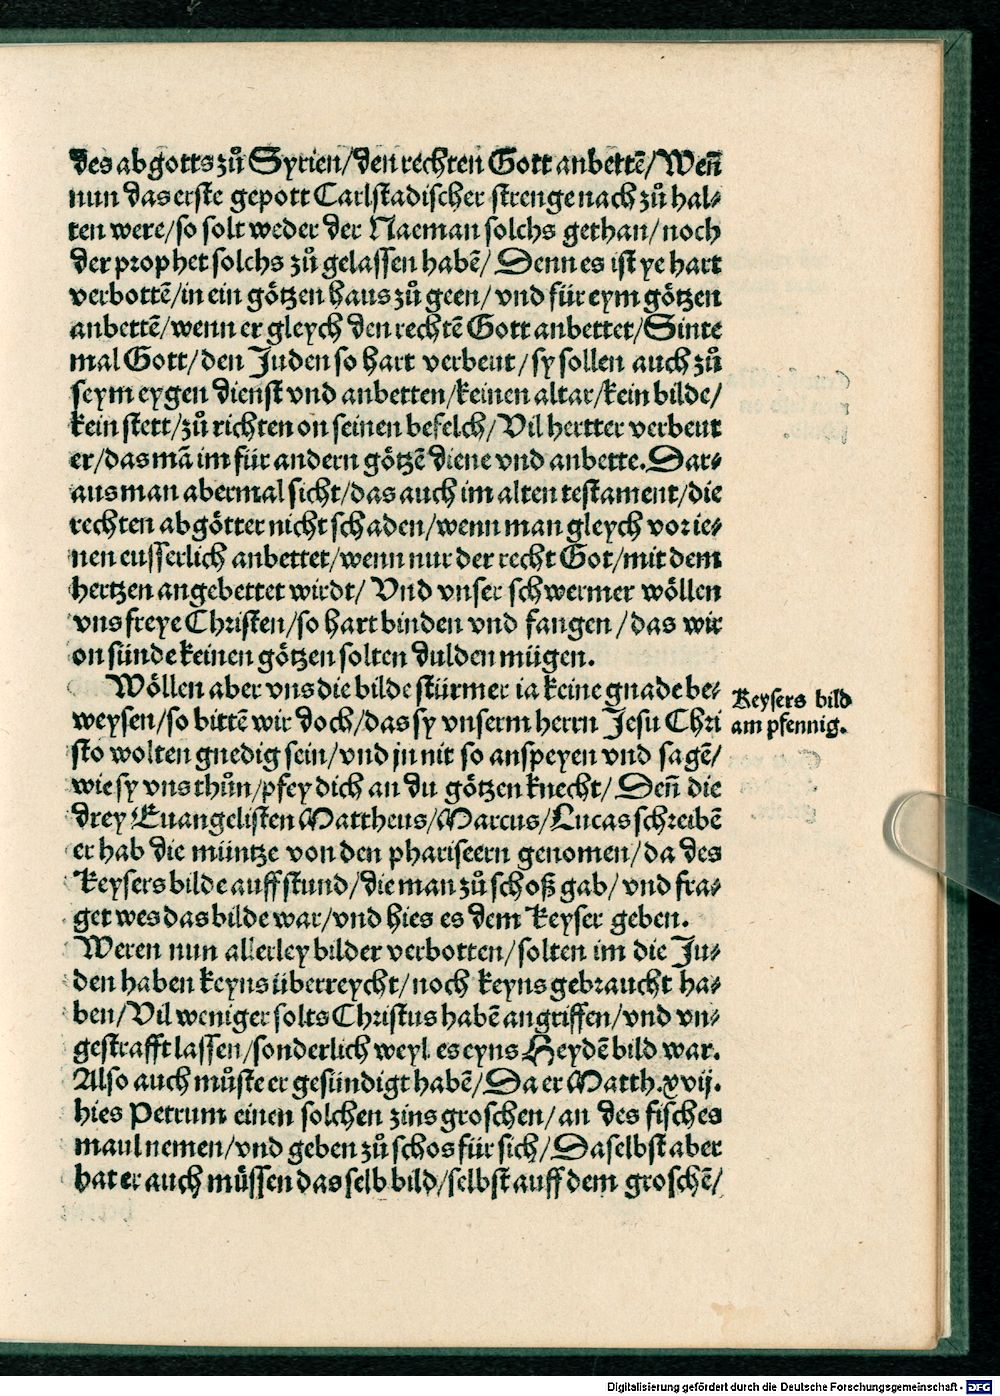 des abgotts zů Syrien/den rechten Gott anbettē/Weñ
nun das erste gepott Carlstadischer strenge nach zů hal⸗
ten were/so solt weder der Naeman solchs gethan/noch
der prophet solchs zů gelassen habē/ Denn es ist ye hart
verbottē/in ein götzen haus zů geen/ vnd für eym götzen
anbettē/wenn er gleych den rechtē Gott anbettet/Sinte
mal Gott/den Juden so hart verbeut/sy sollen auch zů
seym eygen dienst vnd anbetten/keinen altar/kein bilde/
kein stett/zů richten on seinen befelch/ Vil hertter verbeut
er/das mā im für andern götzē diene vnd anbette. Dar⸗
aus man abermal sicht/das auch im alten testament/die
rechten abgötter nicht schaden/wenn man gleych vor ie⸗
nen eusserlich anbettet/wenn nur der recht Got/mit dem
hertzen angebettet wirdt/ Vnd vnser schwermer wöllen
vns freye Christen/so hart binden vnd fangen/das wir
on sünde keinen götzen solten dulden mügen.
Wöllen aber vns die bilde stürmer ia keine gnade be⸗
weysen/so bittē wir doch/das sy vnserm herrn Jesu Chri
sto wolten gnedig sein/vnd jn nit so anspeyen vnd sagē/
wie sy vns thůn/pfey dich an du götzen knecht/ Deñ die
drey Euangelisten Mattheus/Marcus/Lucas schreibē
er hab die müntze von den phariseern genomen/da des
Keysers bilde auff stund/die man zů schoß gab/ vnd fra⸗
get wes das bilde war/vnd hies es dem Keyser geben.
Weren nun allerley bilder verbotten/solten im die Ju⸗
den haben keyns überreycht/noch keyns gebraucht ha⸗
ben/Vil weniger solts Christus habē angriffen/vnd vn⸗
gestrafft lassen/sonderlich weyl es eyns Heydē bild war.
Also auch můste er gesündigt habē/Da er Matth. xvij.
hies Petrum einen solchen zins groschen/an des fisches
maul nemen/vnd geben zů schos für sich/Daselbst aber
hat er auch müssen das selb bild/selbst auff dem groschē/
Keysers bild
am pfennig.
Digitalisierung gefördert durch die Deutsche Forschungsgemeinschaft - DFG